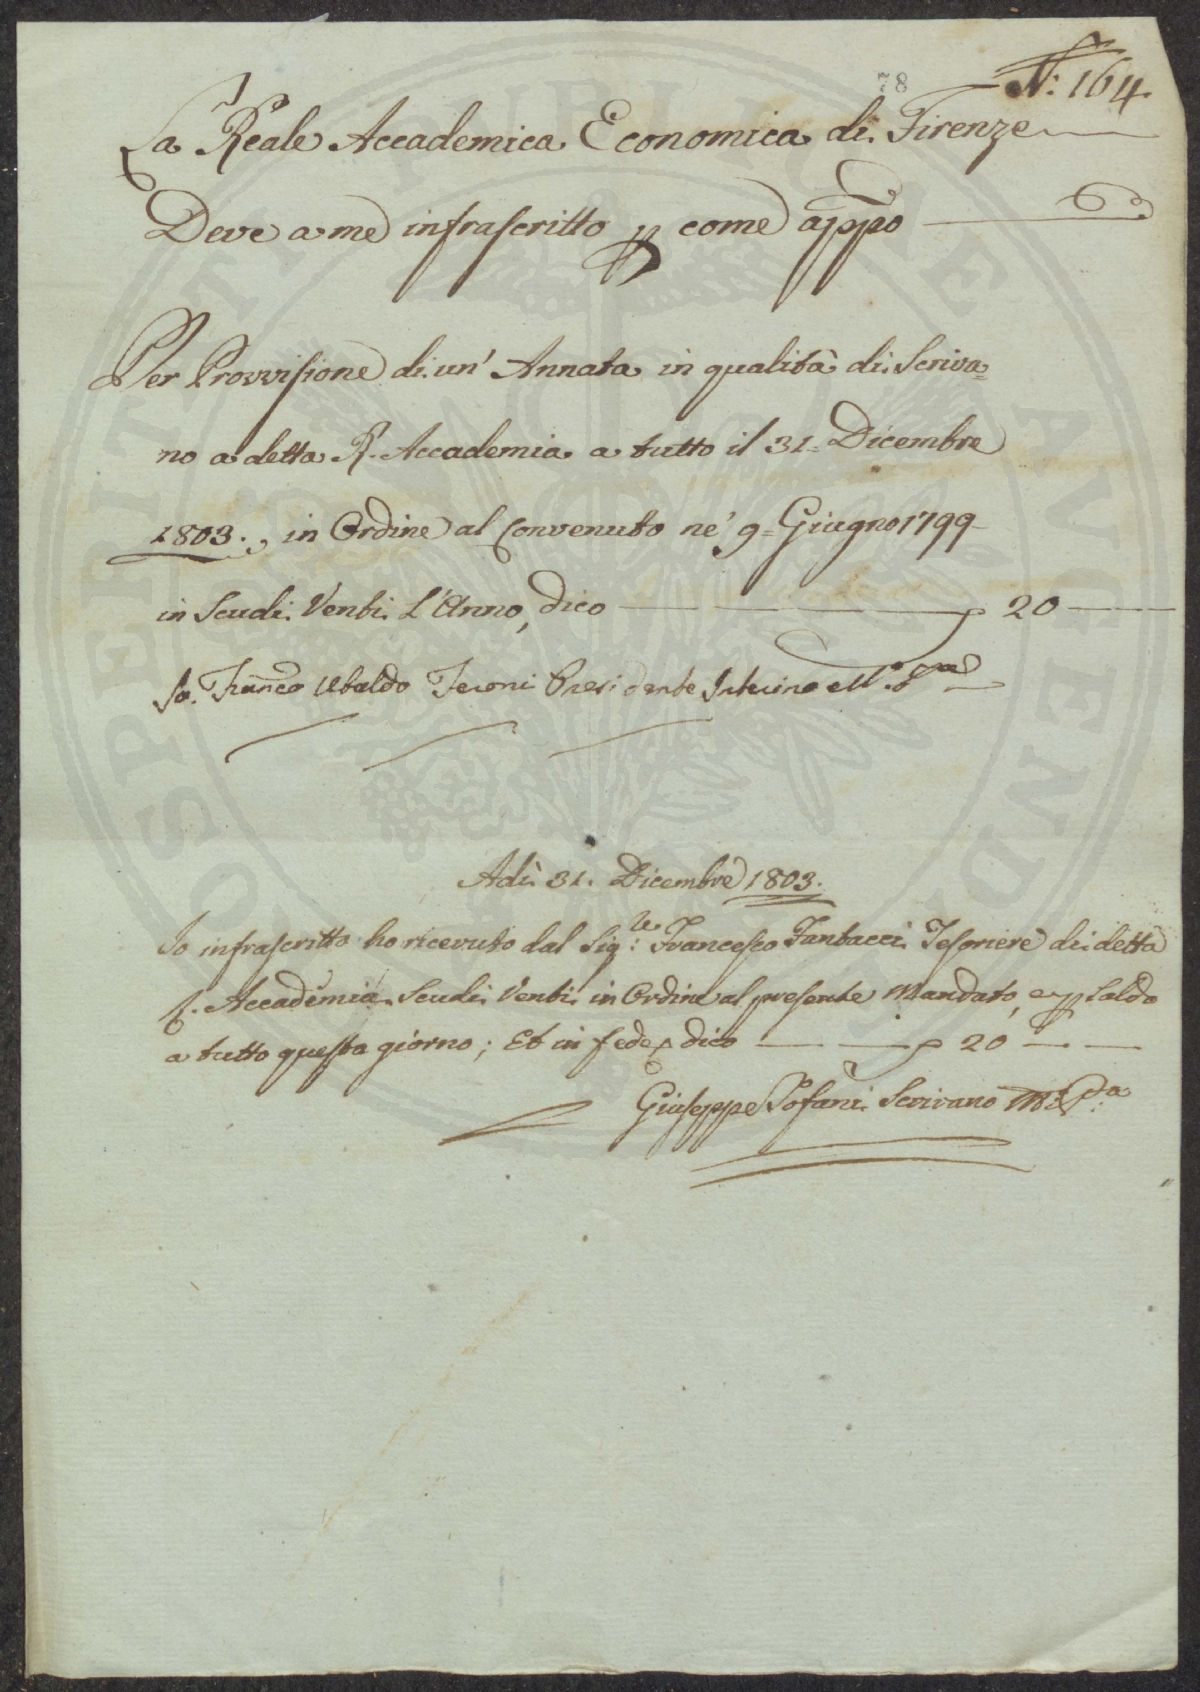 78
N: 164
La Reale Accademica Economica di Firenze
Deve a me infrascritto p come appo
Per Provvisione di un' Annata in qualità di Scriva=
no a detta R. Accademia a tutto il 31= Dicembre
1803., in Ordine al Convenuto ne' 9= Giugno 1799
in Scudi Venti L'Anno, dico 20
Io Franco Ubaldo Feroni Presidente Interino
Adì 31. Dicembre 1803.
Io infrascritto ho ricevuto dal Sig:re Francesco Fantacci Tesoriere di detta
R. Accademia Scudi Venti in Ordine al presente Mandato, e p saldo
a tutto questo giorno; Et in fede p dico 20
Giuseppe Tofani Scrivano M: Pa
PUBLICAE AUGENDAE PROSPERITATI